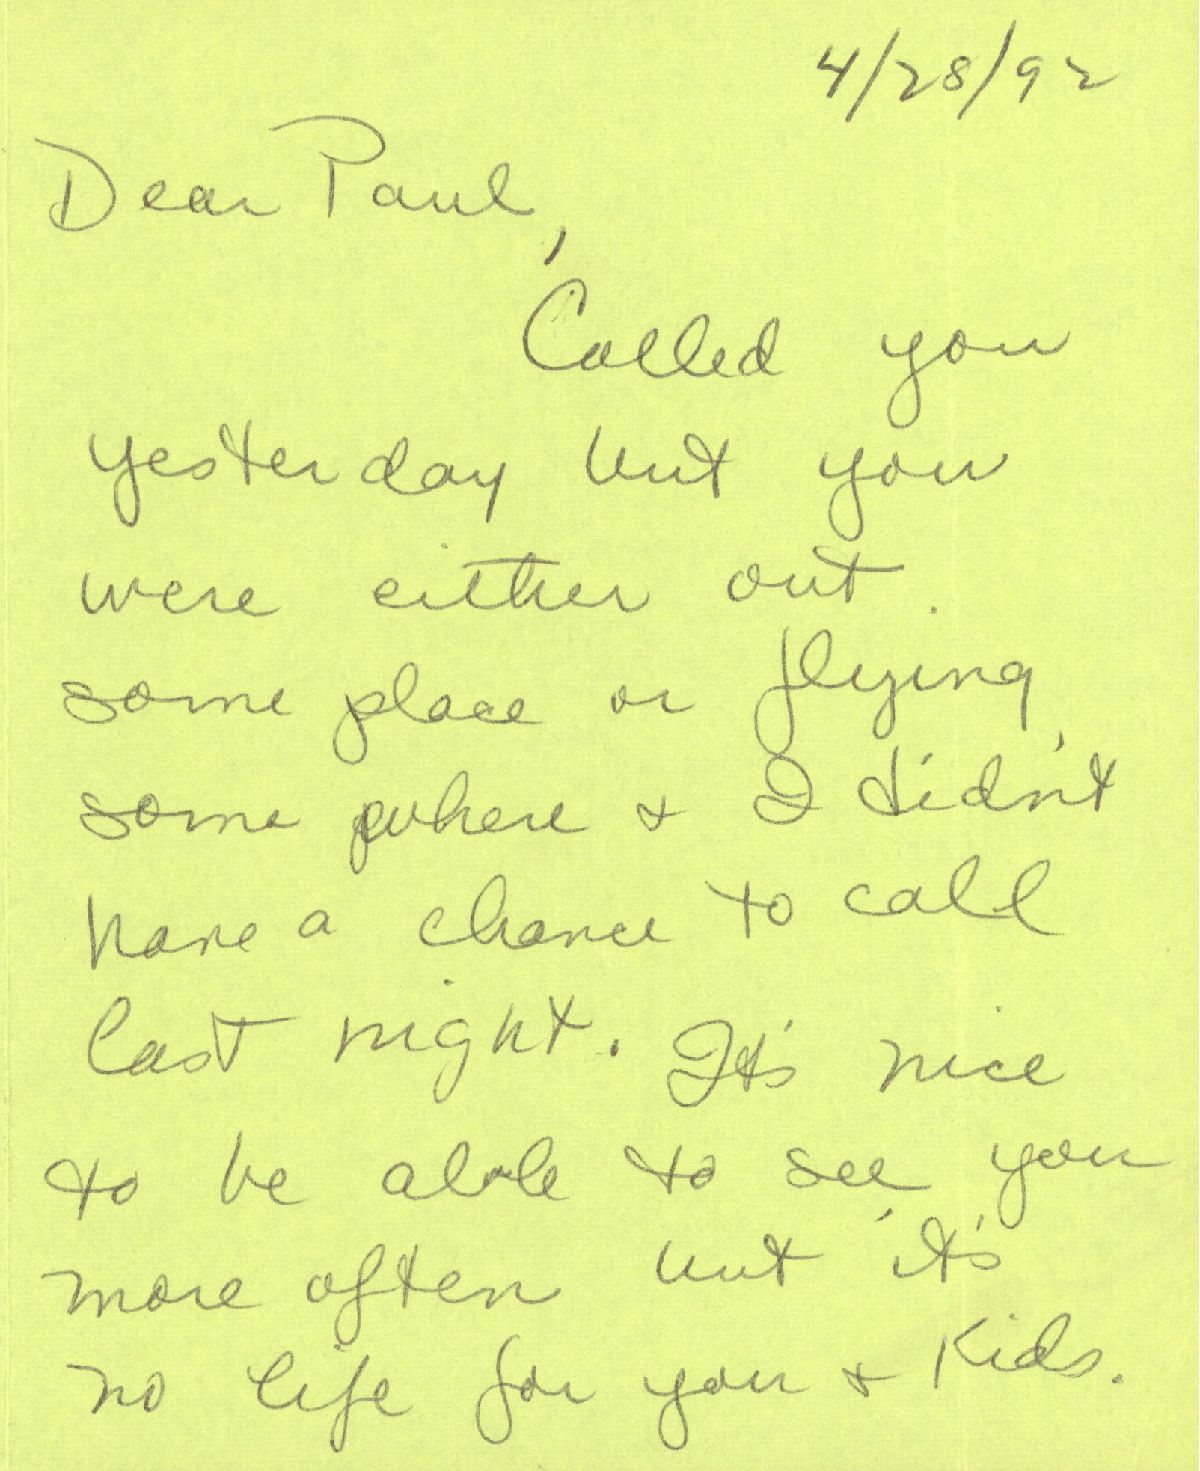 4/28/92
Dear Paul,
Called you
yesterday but you
were either out
some place or flying
some where & I didn't
have a chance to call
last night. It's nice
to be able to see you
more often but it's
no life for you & Kids.